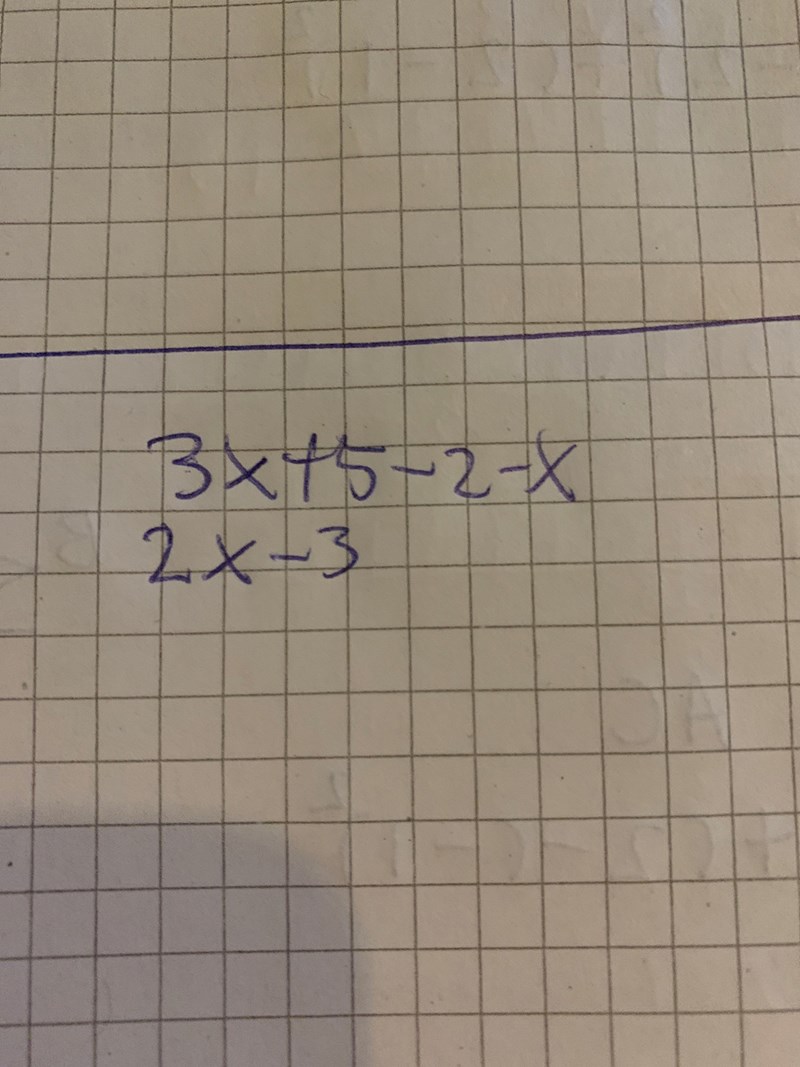 3x+5-2-x
2x-3